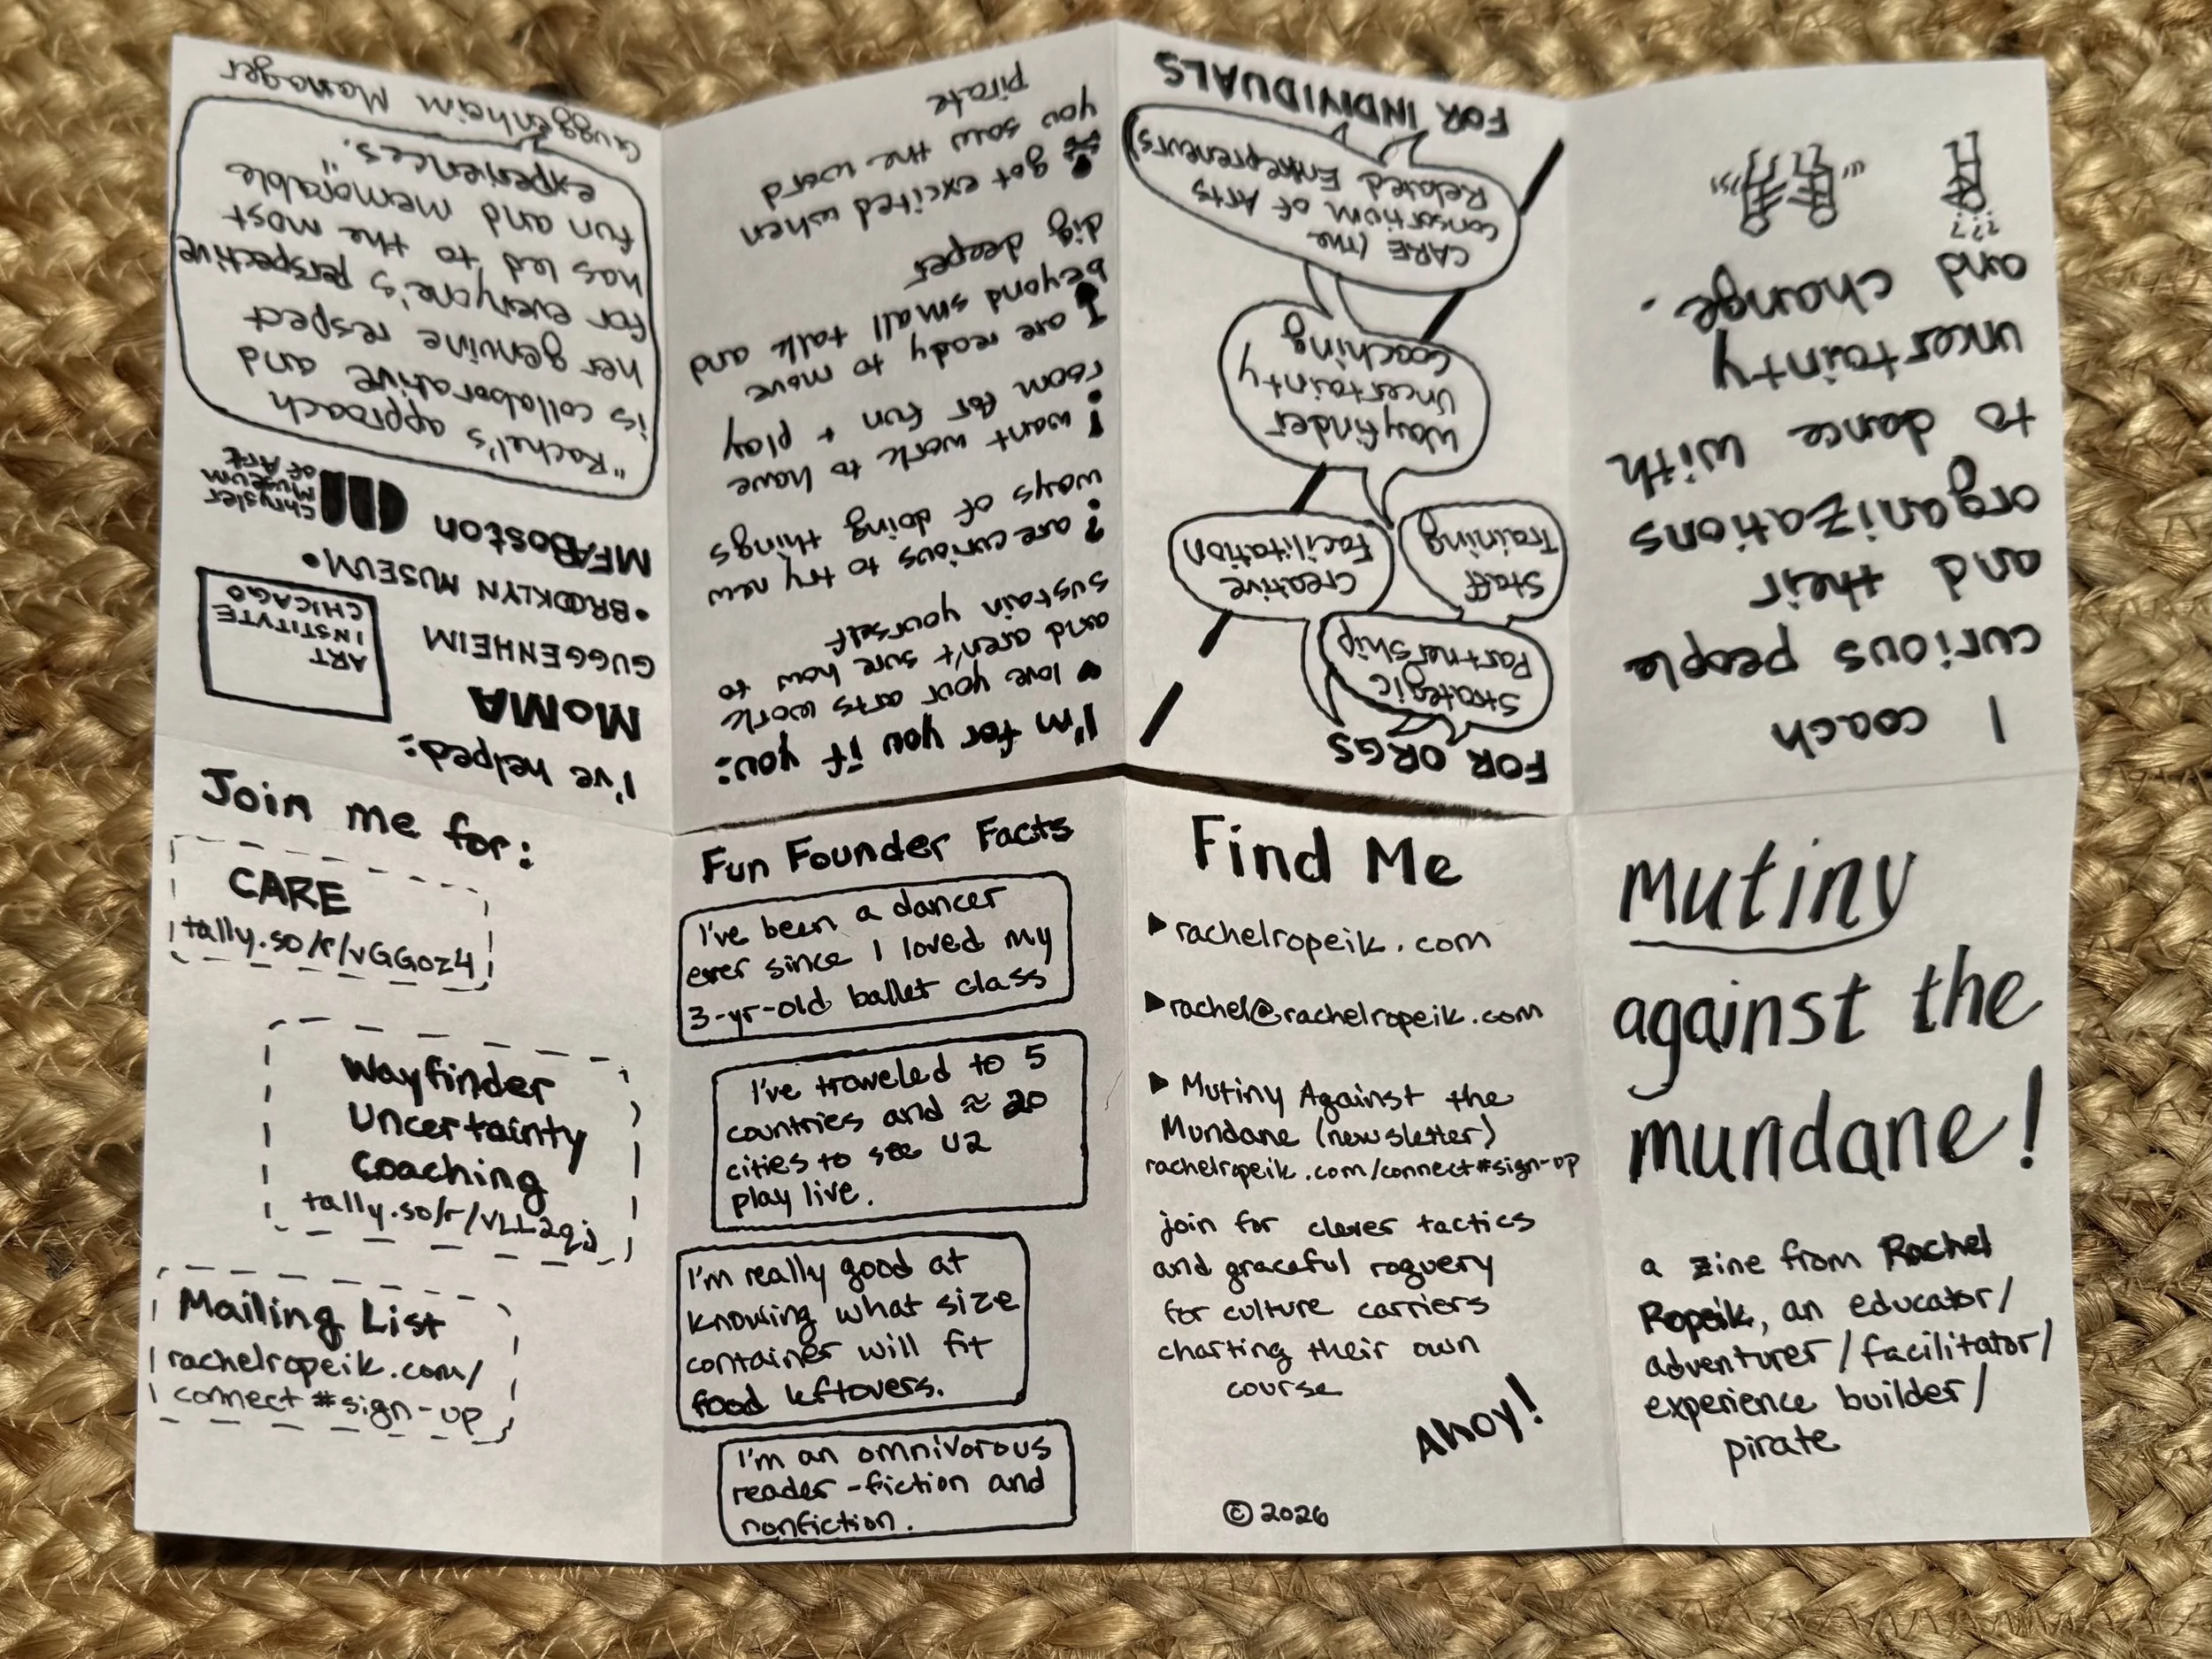 mutiny
against the
mundane!
a zine from Rachel
Ropeik, an educator/
adventurer/facilitator/
experience builder/
pirate
I coach
curious people
and their
organizations
to dance with
uncertainty
and change.
???
FOR ORGS
Strategic
Partnership
Staff
Training
Creative
Facilitation
Wayfinder
Uncertainty
Coaching
CARE (the
Consortium of Arts
Related Entrepreneurs)
FOR INDIVIDUALS
I'm for you if you:
♥ love your arts work
and aren't sure how to
sustain yourself
? are curious to try new
ways of doing things
! want work to have
room for fun + play
are ready to move
beyond small talk and
dig deeper
got excited when
you saw the word
pirate
I've helped:
MoMA
GUGGENHEIM
ART
INSTITVTE
CHICAGO
•BROOKLYN MUSEUM•
MFABoston
Chrysler
Museum
of Art
"Rachel's approach
is collaborative and
her genuine respect
for everyone's perspective
has led to the most
fun and memorable
experiences."
Guggenheim Manager
Join me for:
CARE
tally.so/r/vGGoz4
Wayfinder
Uncertainty
Coaching
tally.so/r/VLL2qj
Mailing List
rachelropeik.com/
connect#sign-up
Fun Founder Facts
I've been a dancer
ever since I loved my
3-yr-old ballet class
I've traveled to 5
countries and ≈ 20
cities to see U2
play live.
I'm really good at
knowing what size
container will fit
food leftovers.
I'm an omnivorous
reader - fiction and
nonfiction.
Find Me
▶ rachelropeik.com
▶ rachel@rachelropeik.com
▶ Mutiny Against the
Mundane (newsletter)
rachelropeik.com/connect#sign-up
join for clever tactics
and graceful roguery
for culture carriers
charting their own
course
AHOY!
© 2026